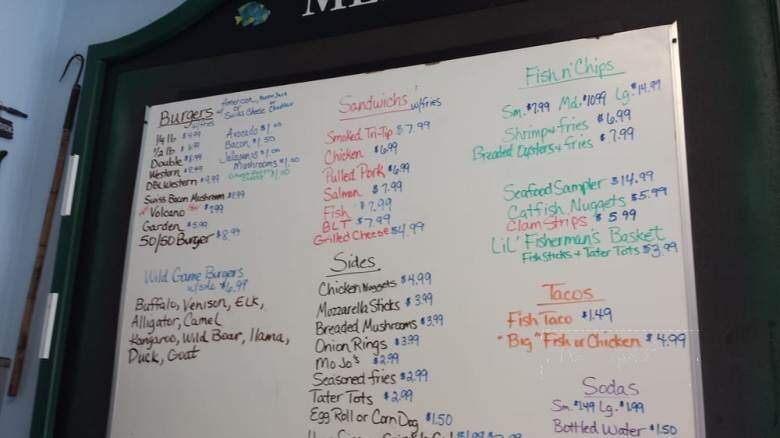 Burgers
w/fries
American, Pepper Jack
or
Swiss Cheese or Cheddar
1/4 lb $4.99
1/2 lb $6.99
Double $8.99
Western $8.99
Dbl.Western $9.99
Swiss Bacon Mushroom $8.99
Volcano $7.99
Garden $5.99
50/50 Burger $8.99
Avocado $1.00
Bacon $1.50
Jalapeños $1.00
Mushrooms $1.00
Wild Game Burgers
w/side $6.99
Buffalo, Venison, ELK,
Alligator, Camel
Kangaroo, Wild Boar, llama,
Duck, Goat
Sandwichs w/fries
Smoked Tri-Tip $7.99
Chicken $6.99
Pulled Pork $6.99
Salmon $7.99
Fish $7.99
BLT $7.99
Grilled Cheese $4.99
Sides
Chicken Nuggets $4.99
Mozzarella Sticks $3.99
Breaded Mushrooms $3.99
Onion Rings $3.99
Mo Jo's $2.99
Seasoned fries $2.99
Tater Tots $2.99
Egg Roll or Corn Dog $1.50
Fish n' Chips
Sm. $7.99 Md. $10.99 Lg. $14.99
Shrimp + fries $6.99
Breaded Oysters + fries $7.99
Seafood Sampler $14.99
Catfish Nuggets $5.99
Clam Strips $5.99
LiL' Fisherman's Basket
Fish sticks + Tater Tots $3.99
Tacos
Fish Taco $1.49
"Big" Fish or Chicken $4.99
Sodas
Sm. $1.49 Lg. $1.99
Bottled Water $1.50